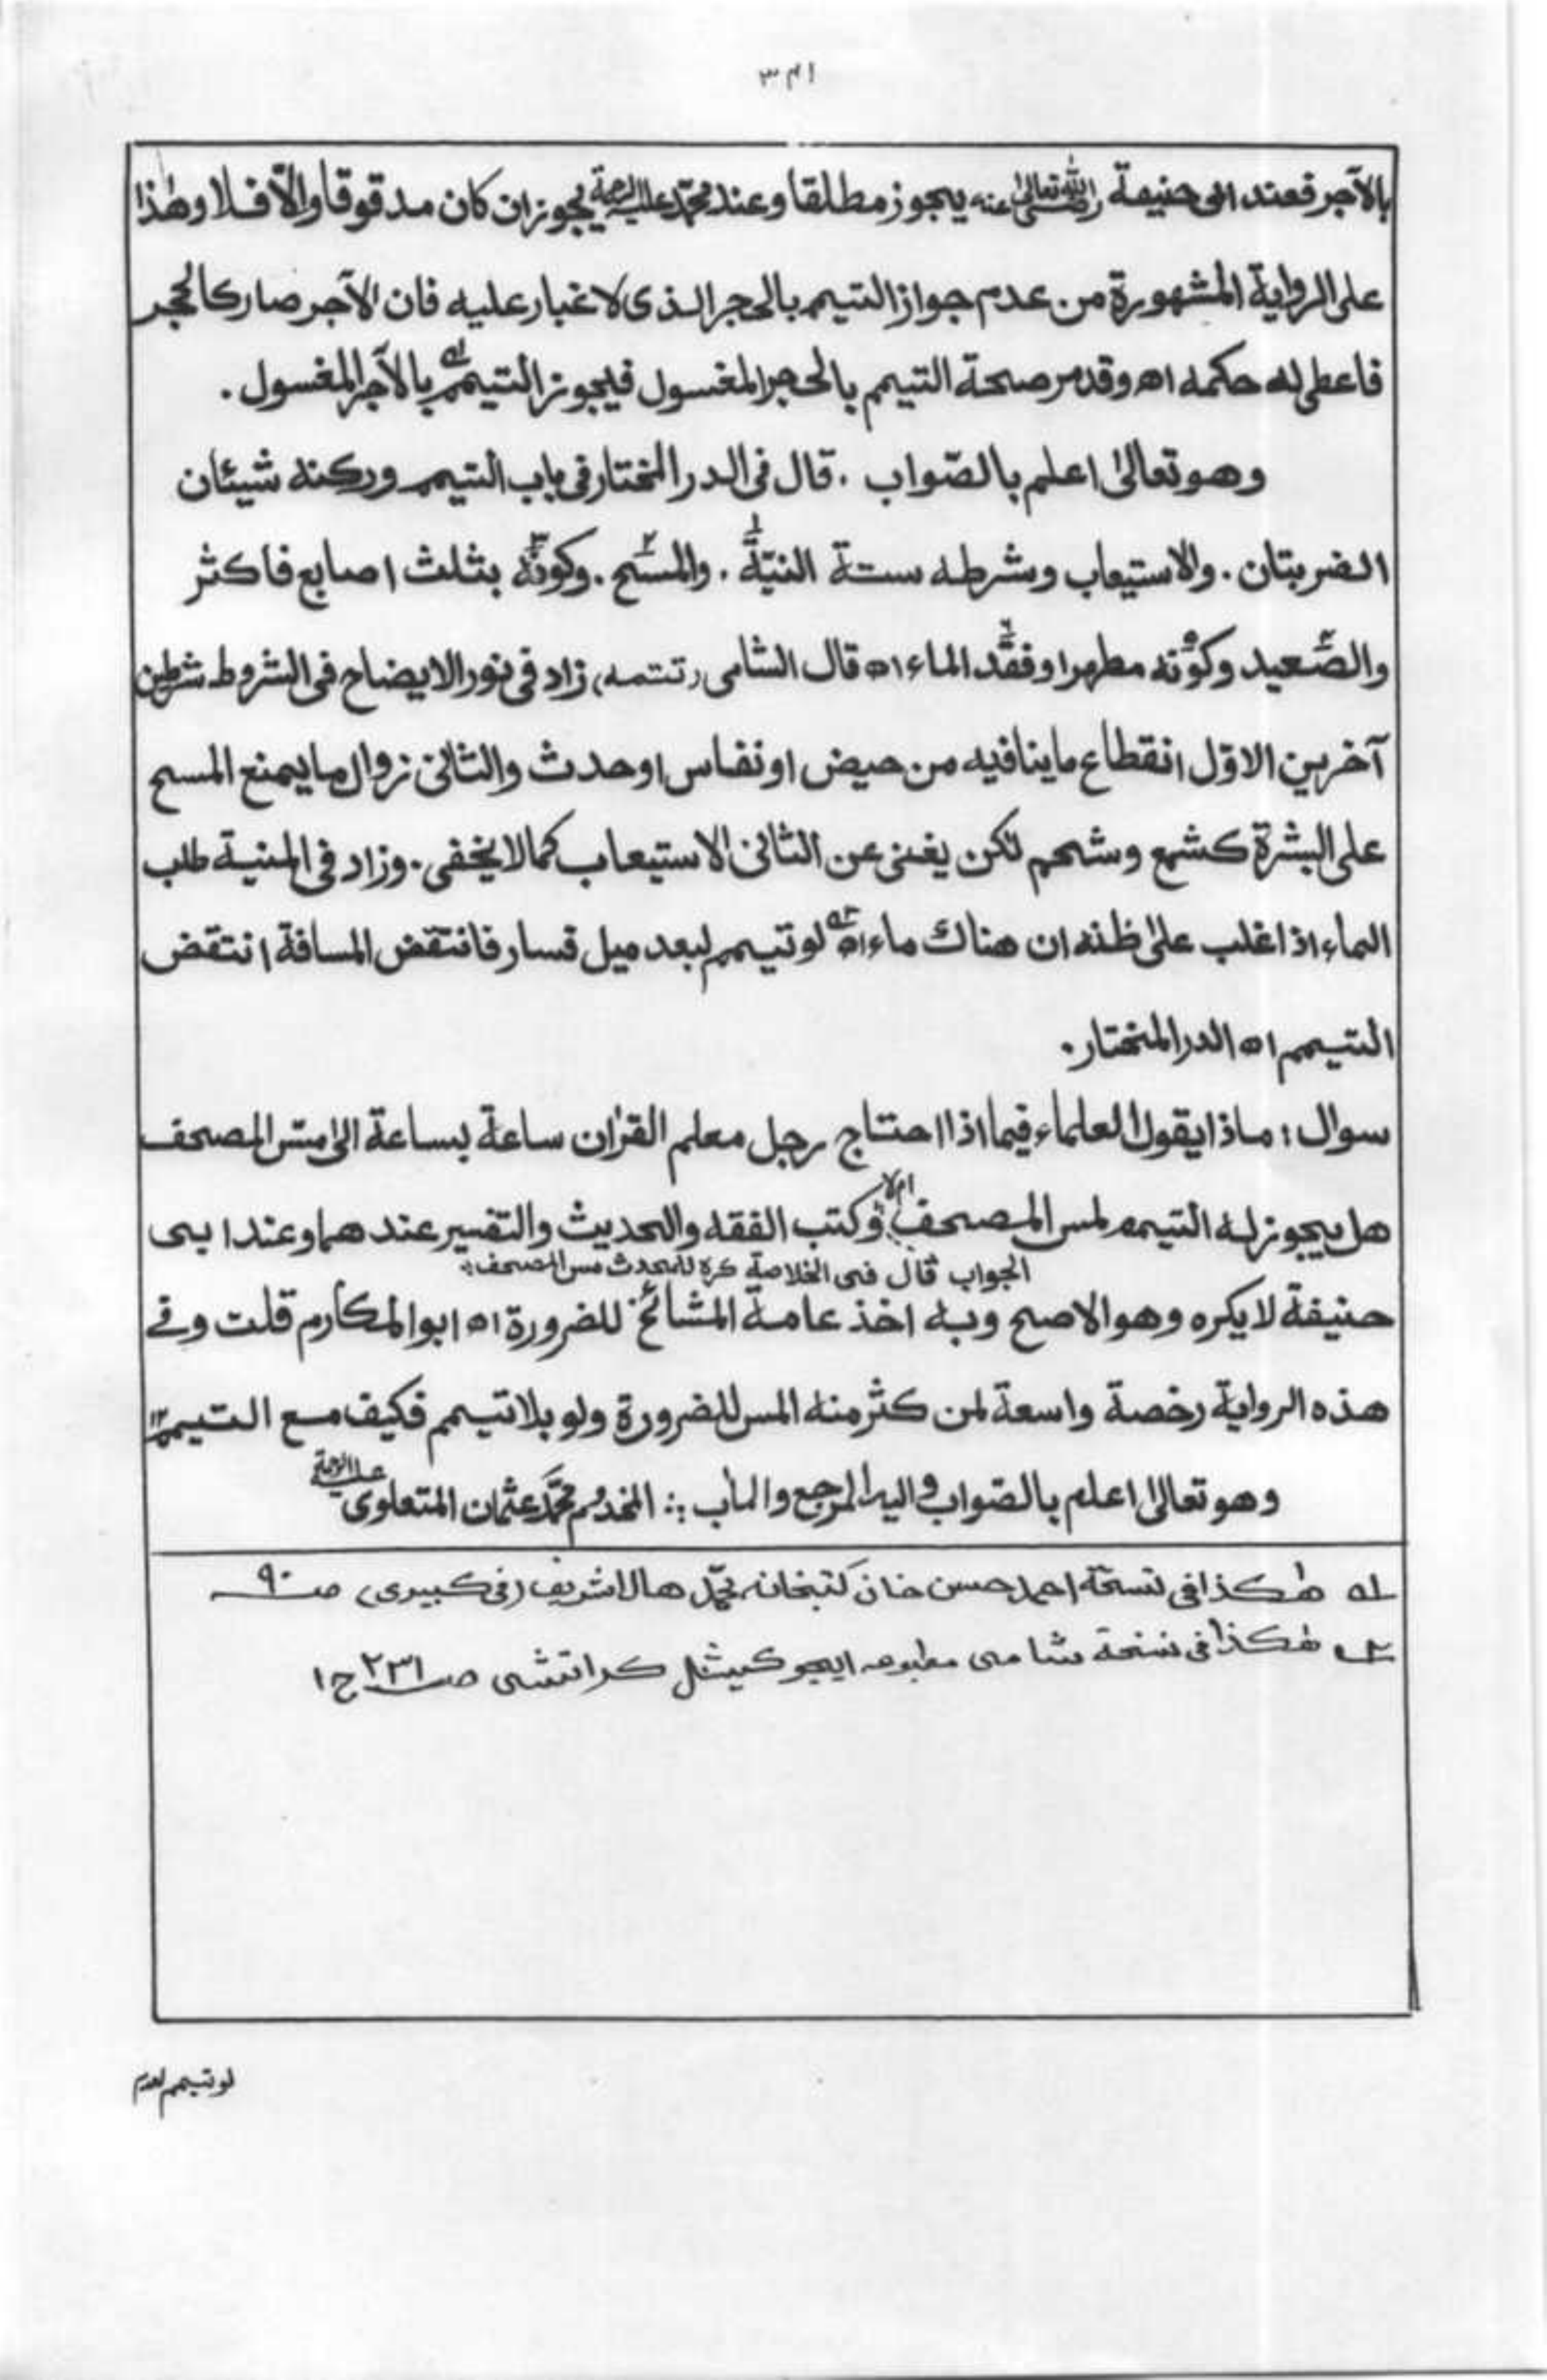 ٣٤١
بالآجر فعند ابی حنیفة رضی الله تعالیٰ عنه یجوز مطلقا وعند محمّد علیه الرحمة یجوز ان کان مدقوقا والّا فلا وهٰذا
علی الروایة المشهورة من عدم جواز التیمم بالحجر الذی لا غبار علیه فان الآجر صار کالحجر
فاعطی له حکمه اھ وقد مر صحة التیمم بالحجر المغسول فیجوز التیمم ١ـه بالآجر المغسول .
وهو تعالیٰ اعلم بالصّواب . قال فی الدر المختار فی باب التیمم ورکنه شیئان
الضربتان . والاستیعاب وشرطه ستة النیّة١ . والمسح٢ . وکونه٣ بثلث اصابع فاکثر
والصّعید٤ وکونه٥ مطهرا وفقد٦ الماء اھ قال الشامی (تتمه) زاد فی نور الایضاح فی الشروط شرطین
آخرین الاوّل انقطاع ما ینافیه من حیض او نفاس او حدث والثانی زوال ما یمنع المسح
علی البشرة کشمع وشحم لکن یغنی عن الثانی الاستیعاب کما لا یخفی . وزاد فی المنیة طلب
الماء اذا غلب علیٰ ظنه ان هناك ماء اھ ٢ـه لو تیمم لبعد میل فسار فانتقض المسافة انتقض
التیمم اھ الدر المختار .
سوال : ماذا یقول العلماء فیما اذا احتاج رجل معلم القراٰن ساعة بساعة الیٰ مسّ المصحف
هل یجوز له التیمم لمس المصحف ام لا وکتب الفقه والحدیث والتفسیر عندهما وعند ابی
الجواب قال فی الخلاصة کره للمحدث مس المصحف
حنیفة لا یکره وهو الاصح وبه اخذ عامة المشائخ للضرورة اھ ابو المکارم قلت وفی
هذه الروایة رخصة واسعة لمن کثر منه المس للضرورة ولو بلا تیمم فکیف مع التیمم ١٢
وهو تعالیٰ اعلم بالصّواب والیه المرجع والماٰب : المخدوم محمّد عثمان المتعلوی علیه الرحمة
١ـه هٰکذا فی نسخة احمد حسن خان کتبخانه محمّد هالا شریف (فی کبیری) صـ ٩٠
٢ـه هٰکذا فی نسخة شامی مطبوعه ایجوکیشنل کراتشی صـ ٢٣١ ج ١
لو تیمم لعدم